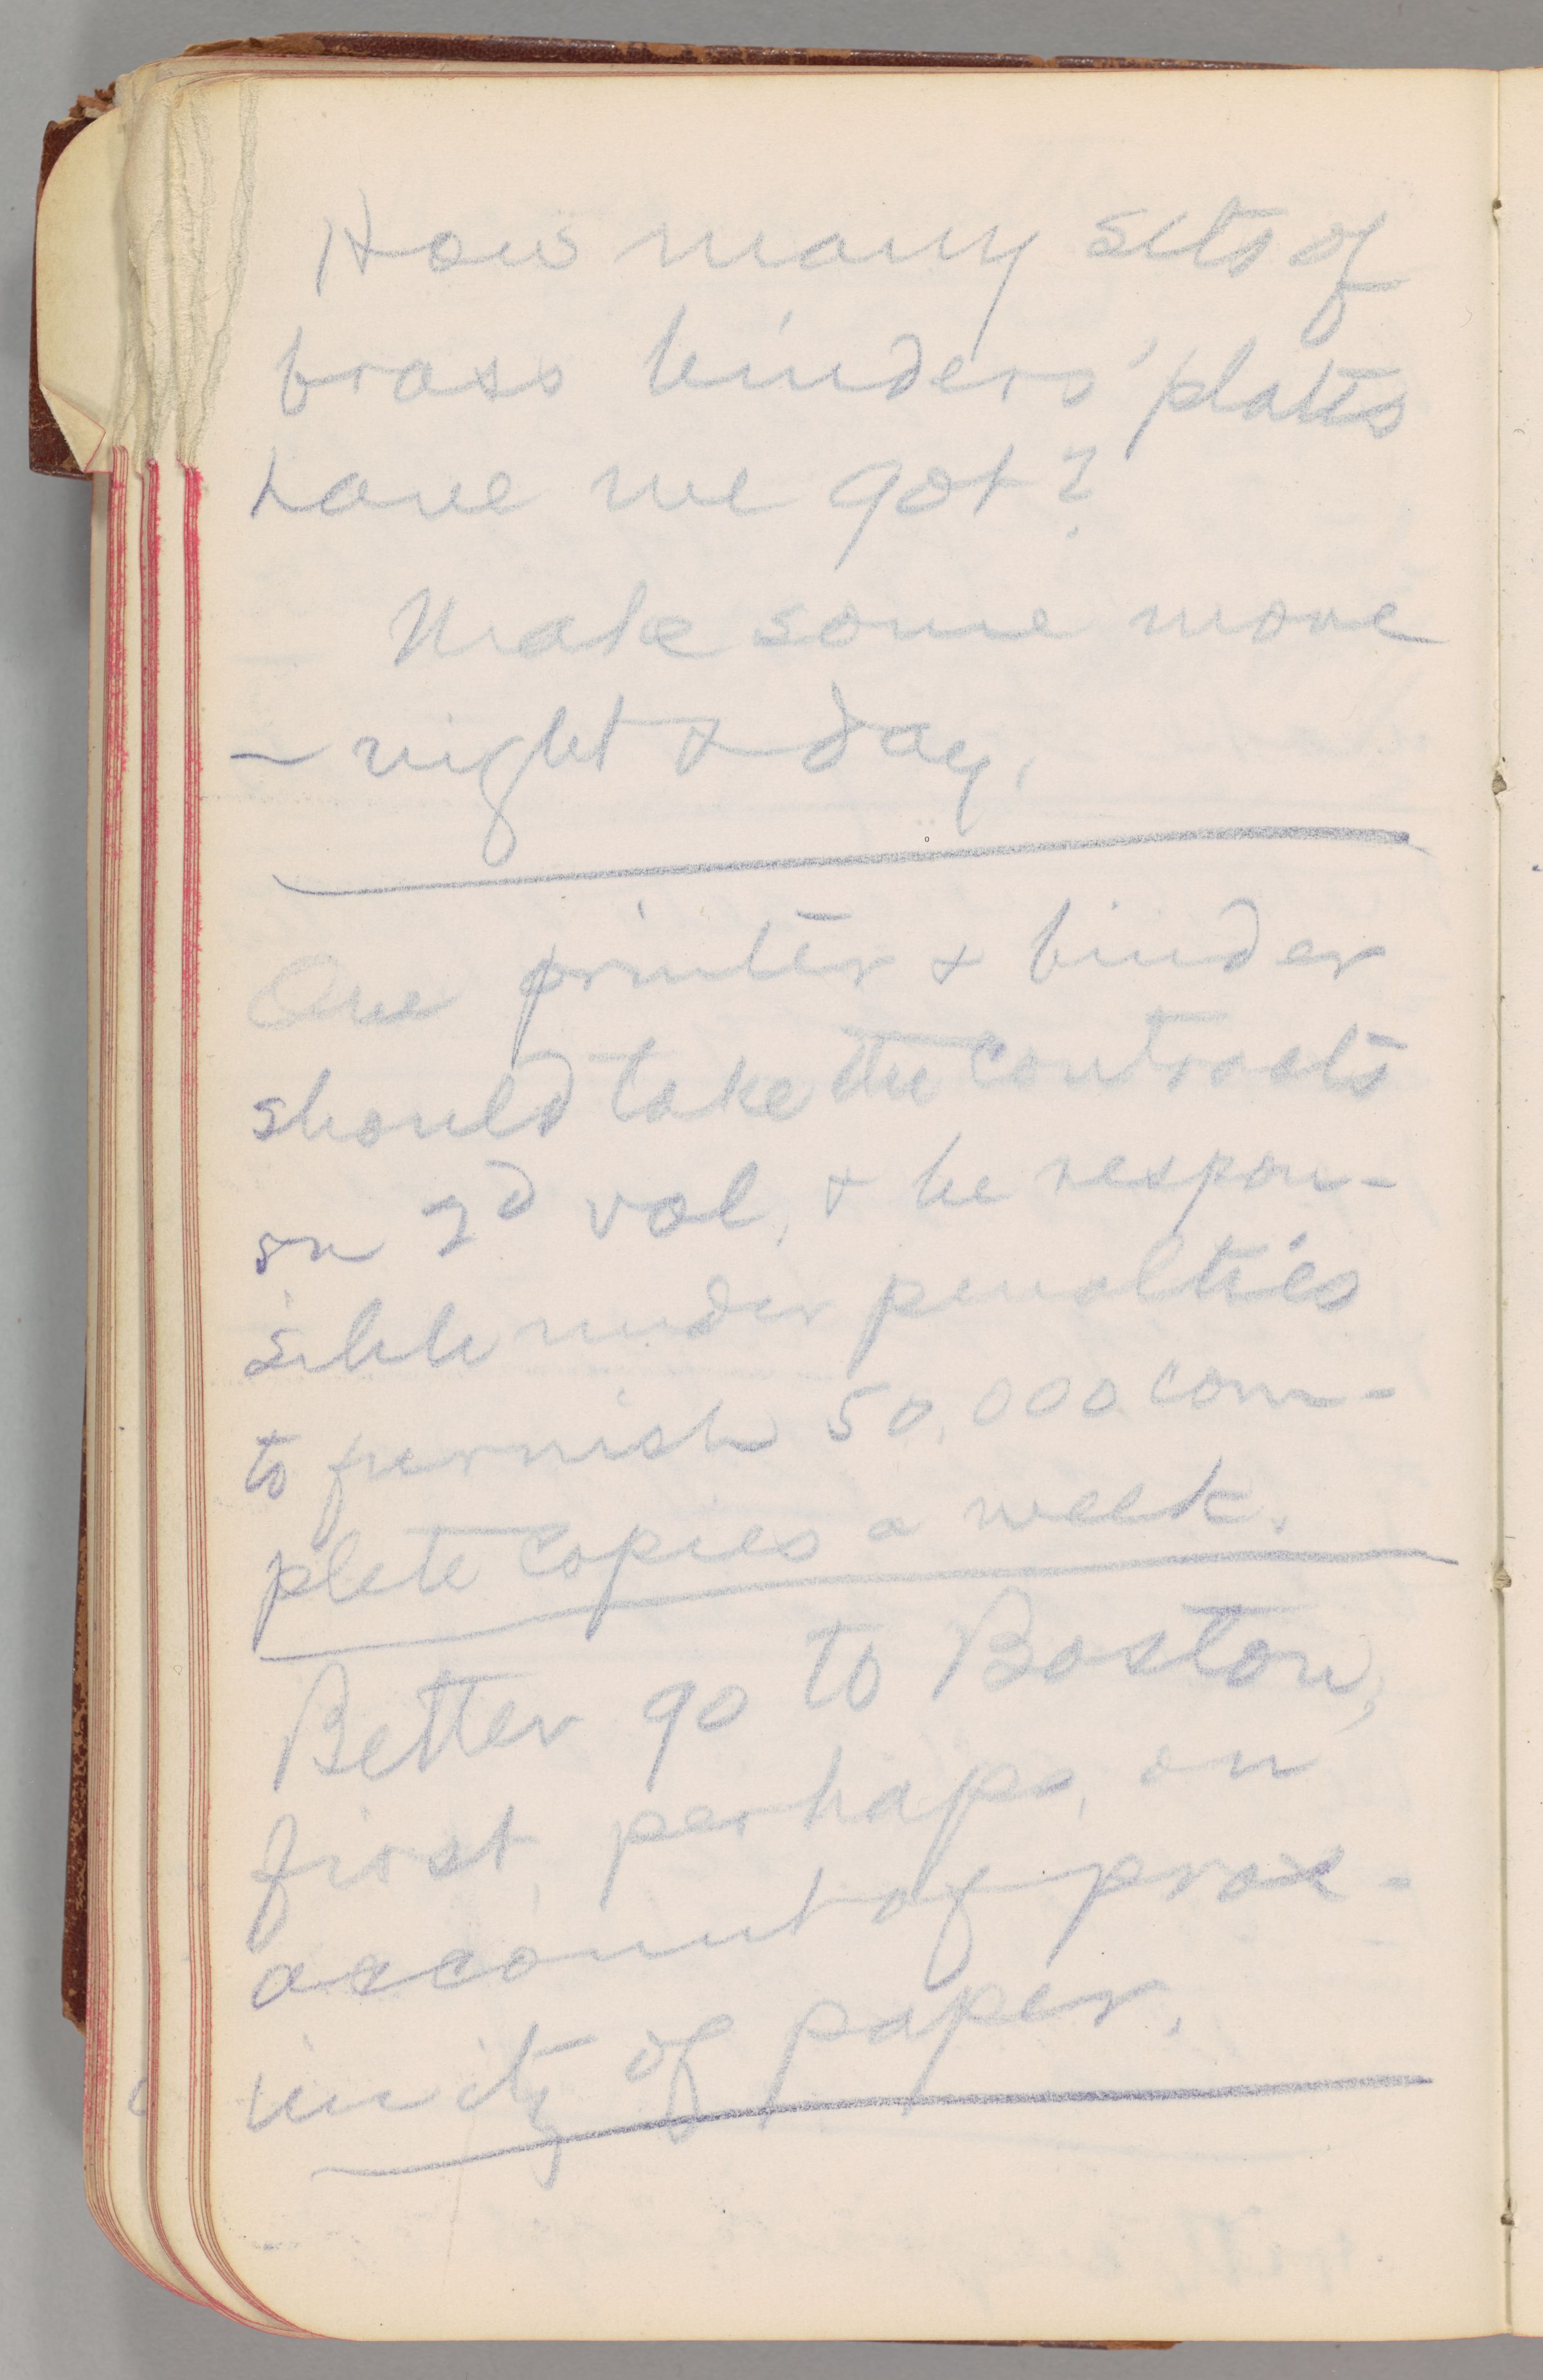 How many sets of
brass binders' plates
have we got?
Make some more
— night & day.
One printer & binder
should take the contracts
on 2d vol, & be respon-
sible under penalties
to furnish 50,000 com-
plete copies a week.
Better go to Boston,
first, perhaps, on
account of prox-
imity of paper.